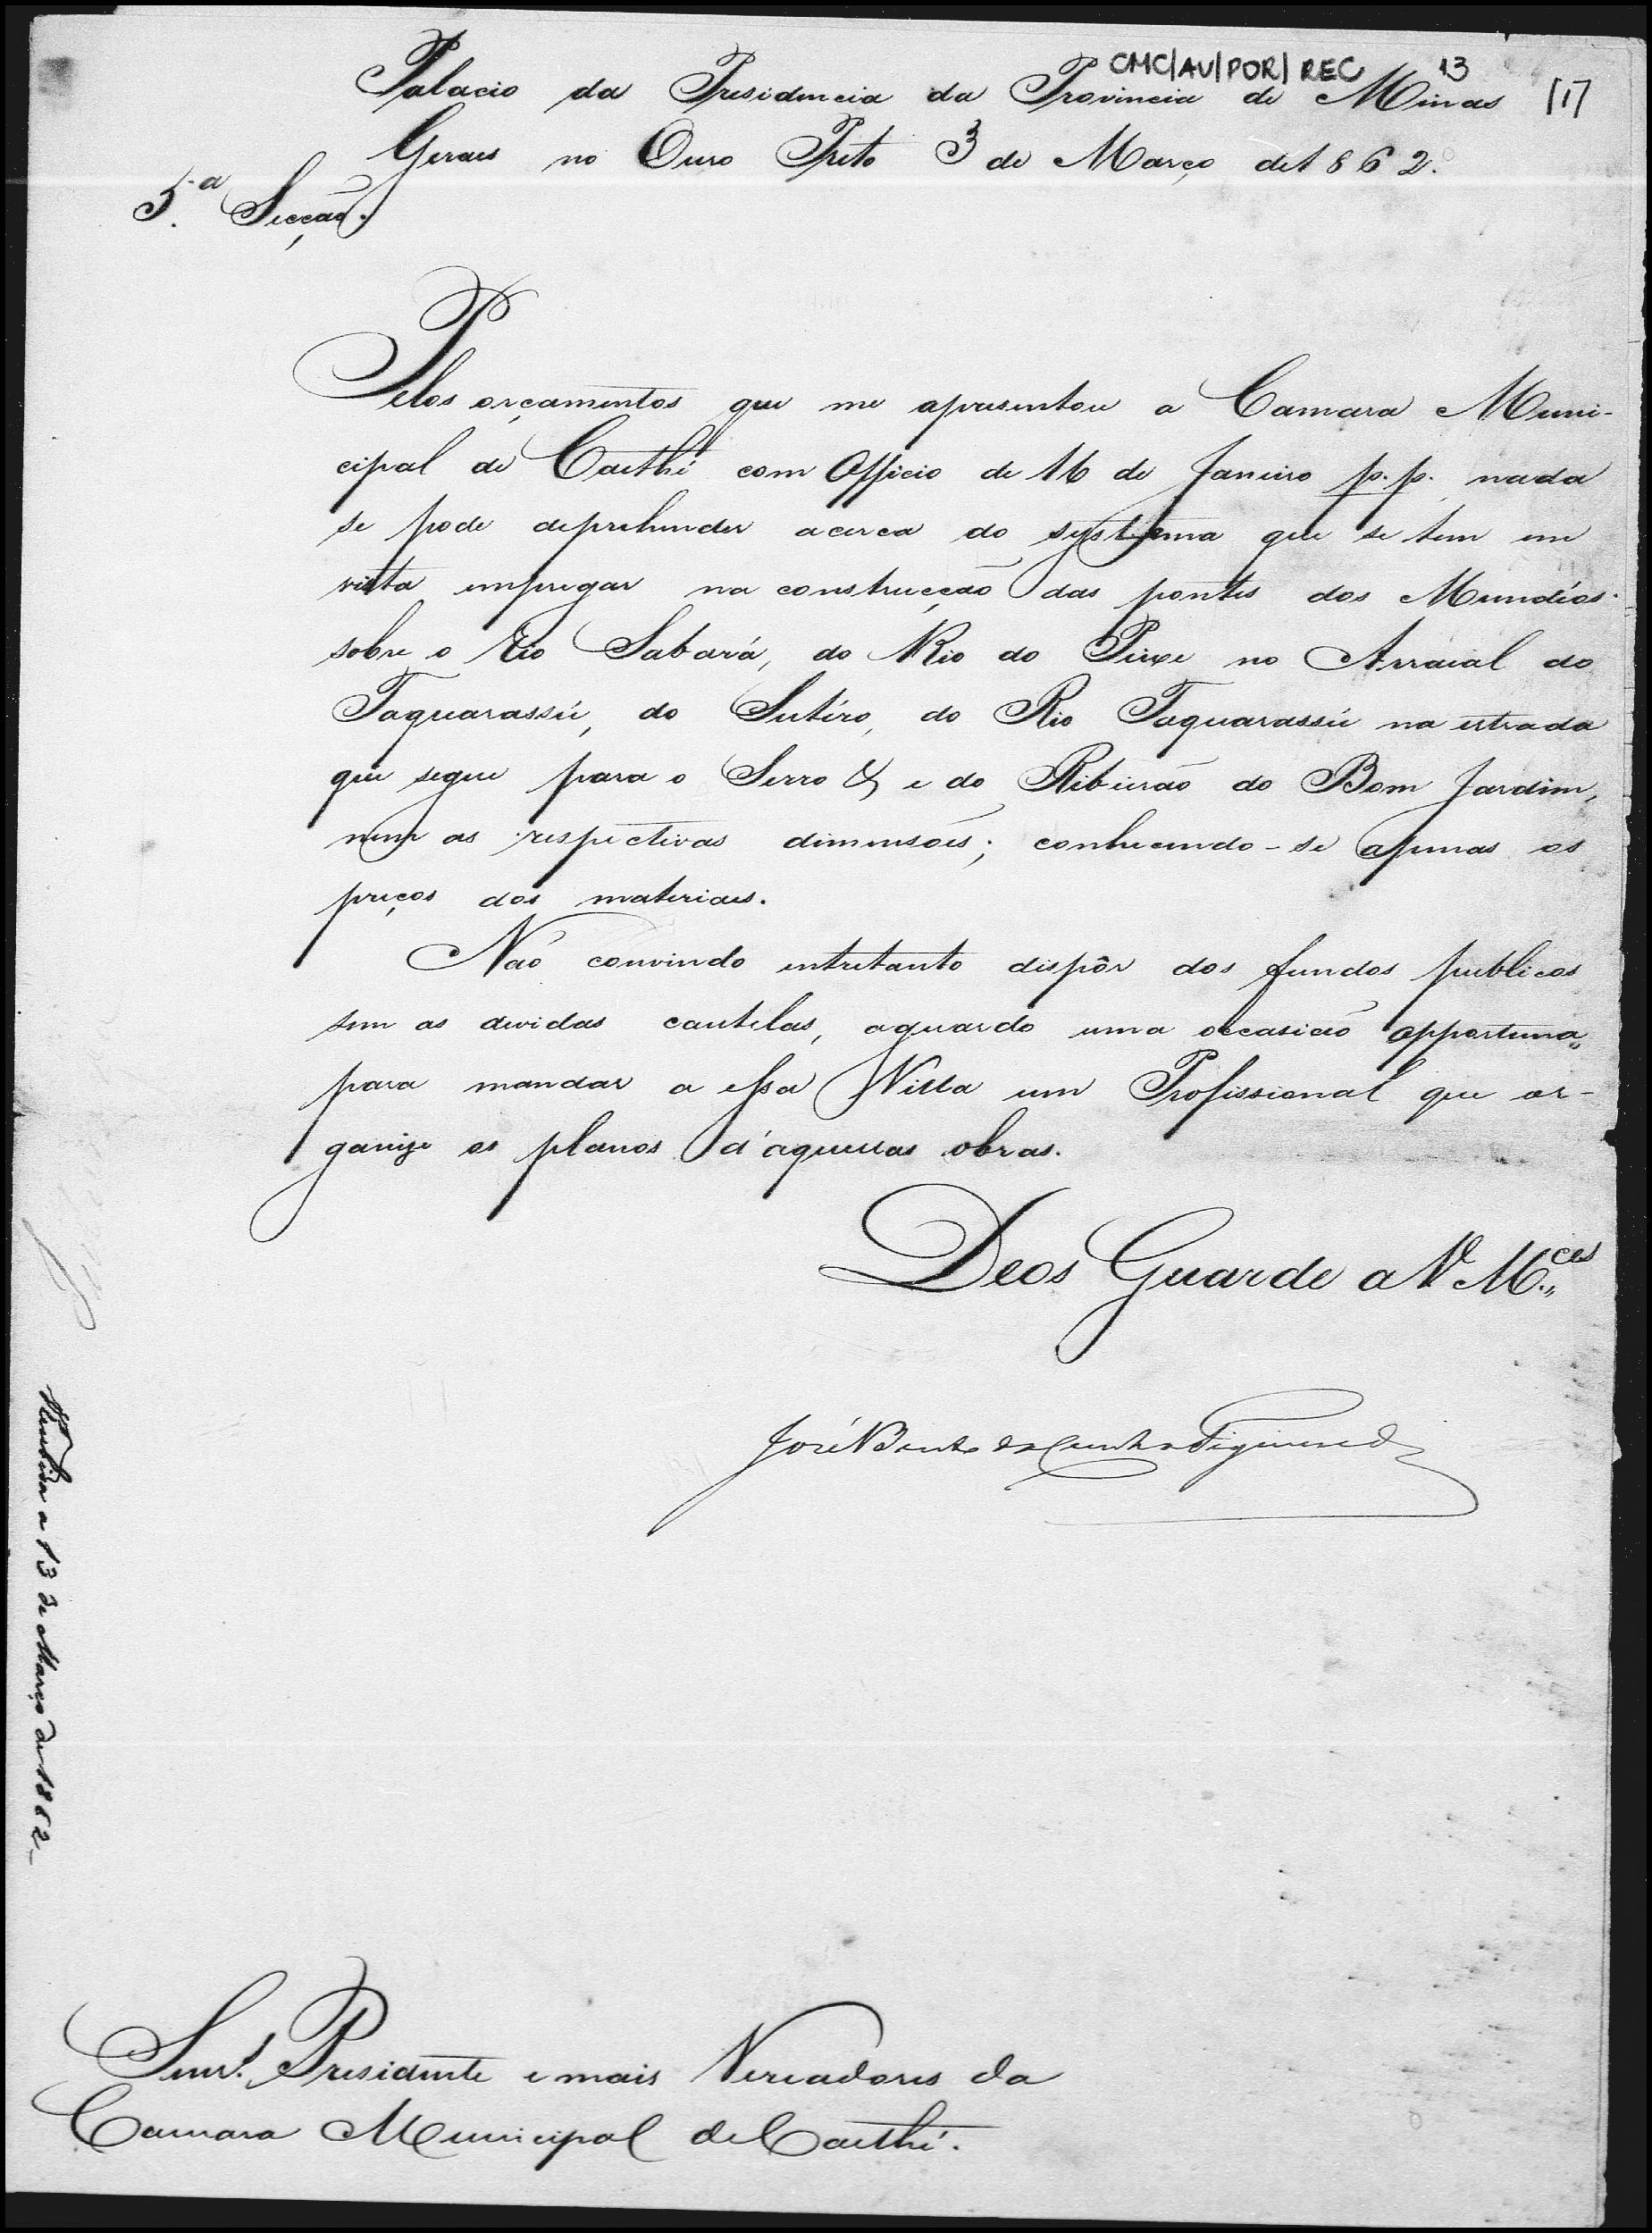 CMC/AV/POR/ REC 13
Palacio da Presidencia da Provincia de Minas [1]
Geraes no Ouro Preto 3 de Março de 1862.
5.ª Secção.
Pelos orçamentos que me apresentou a Camara Muni-
cipal de Caethé com Officio de 16 de Janeiro p.p. nada
se pode deprehender acerca do systema que se tem em
vista empregar na construcção das pontes dos Mundéos
sobre o Rio Sabará, do Rio do Peixe no Arraial do
Taquarassú, do Sutéro, do Rio Taquarassú na estrada
que segue para o Serro & e do Ribeirão do Bom Jardim,
nem as respectivas dimensões; conhecendo-se apenas os
preços dos materiaes.
Não convindo entretanto dispôr dos fundos publicos
sem as devidas cautelas, aguardo uma occasião opportuna,,
para mandar a essa Villa um Profissional que or-
ganize os planos d'aquellas obras.
Deos Guarde a V. M.ces
José Bento da Cunha Figueiredo
Recebida a 13 de Março de 1862
Snrs. Presidente e mais Vereadores da
Camara Municipal de Caethé.